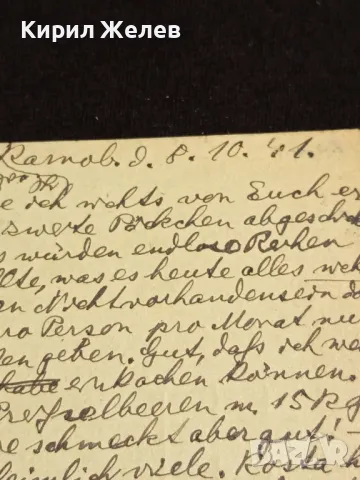 Кирил Желев
Karnob. d. 8. 10. 41.
ich nichts von Euch er
zweite Päckchen abgesch
würden endlose Reihen
llte, was es heute alles
Nichtvorhandensein d
pro Person pro Monat nu
en geben. Gut, daß ich we
habe einkochen können.
Preißelbeeren m. 15 Kg
e schmeckt aber gut! -
heimlich viele. Kosta h
bazar